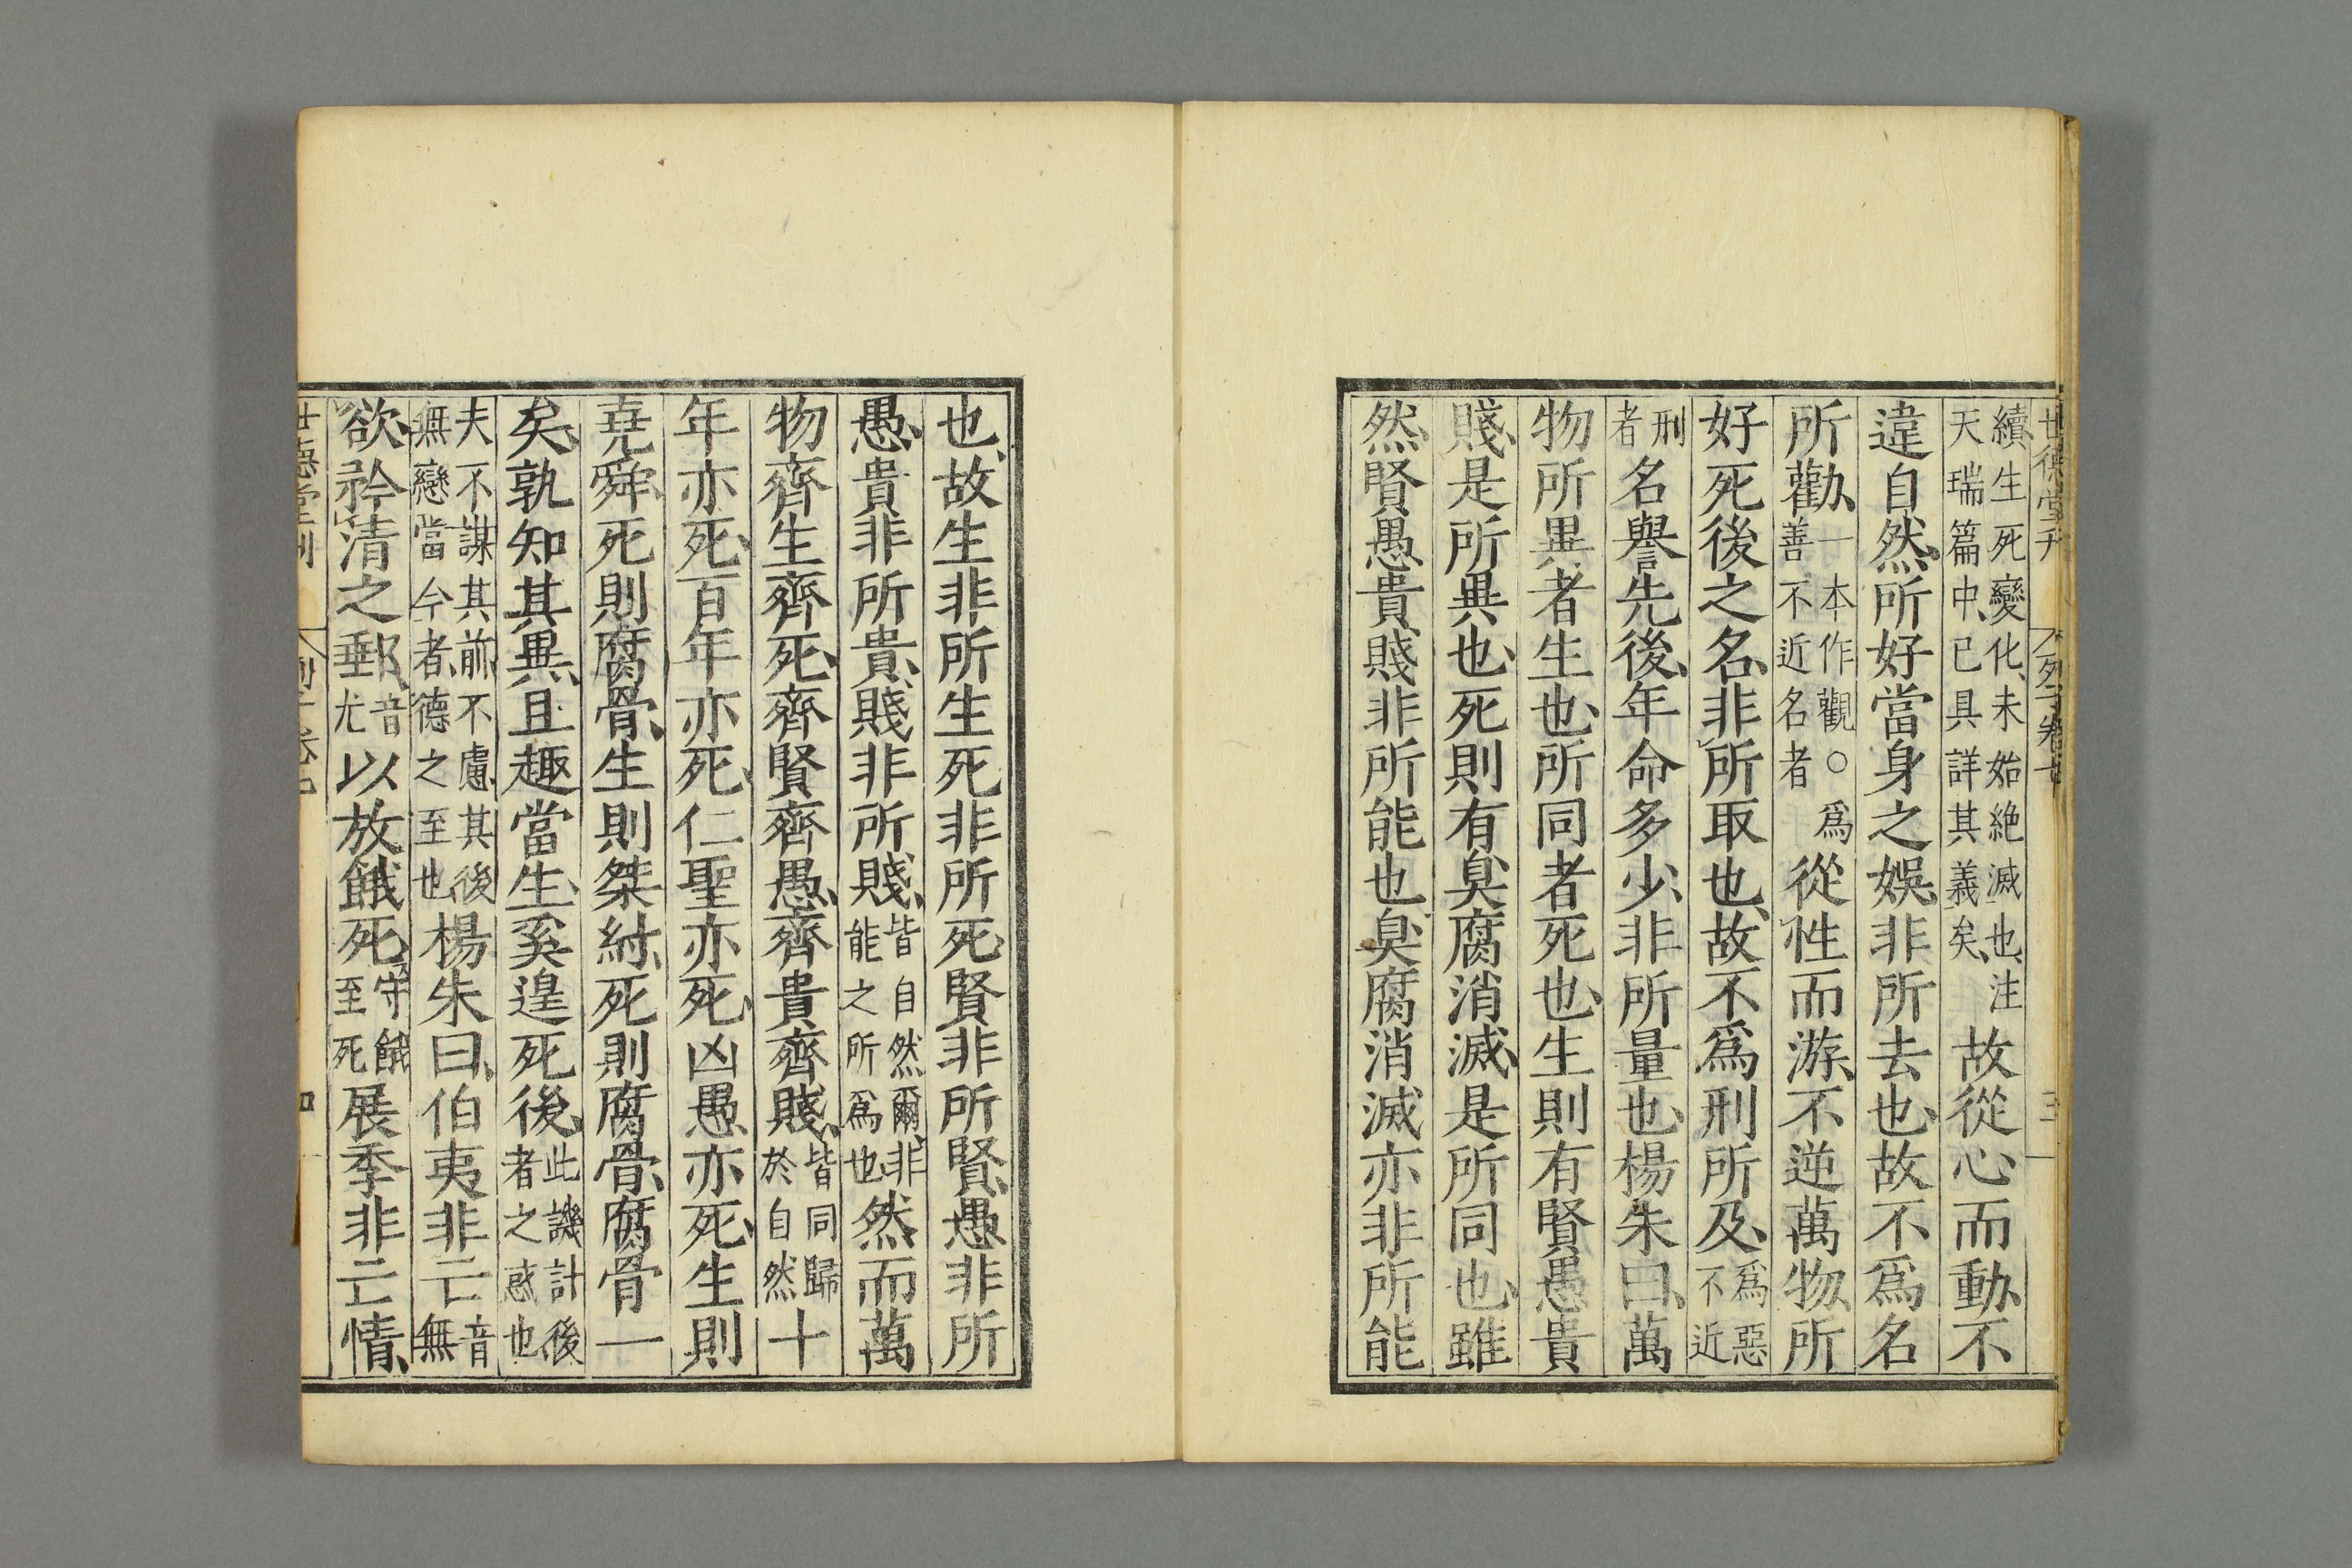 世德堂刊 列子卷七 三
續生死變化、未始絶滅也、注天瑞篇中、已具詳其義矣、故從心而動、不
違自然、所好當身之娛、非所去也、故不爲名
所勸、一本作觀○爲善不近名者從性而游、不逆萬物、所
好死後之名、非所取也、故不爲刑所及、爲惡不近
刑者名譽先後、年命多少、非所量也、楊朱曰、萬
物所異者生也、所同者死也、生則有賢愚貴
賤、是所異也、死則有臭腐消滅、是所同也、雖
然、賢愚貴賤非所能也、臭腐消滅亦非所能
也、故生非所生死非所死、賢非所賢、愚非所
愚、貴非所貴、賤非所賤、皆自然爾、非能之所爲也、然而萬
物齊生齊死、齊賢齊愚、齊貴齊賤、皆同歸於自然十
年亦死、百年亦死、仁聖亦死、凶愚亦死、生則
堯舜、死則腐骨、生則桀紂、死則腐骨、腐骨一
矣、孰知其異、且趣當生、奚遑死後、此譏計後者之惑也
夫不謀其前、不慮其後、無戀當今者、德之至也、楊朱曰、伯夷非亡音無
欲、矜清之郵、音尤以放餓死、守餓至死展季非亡情、
世德堂刊